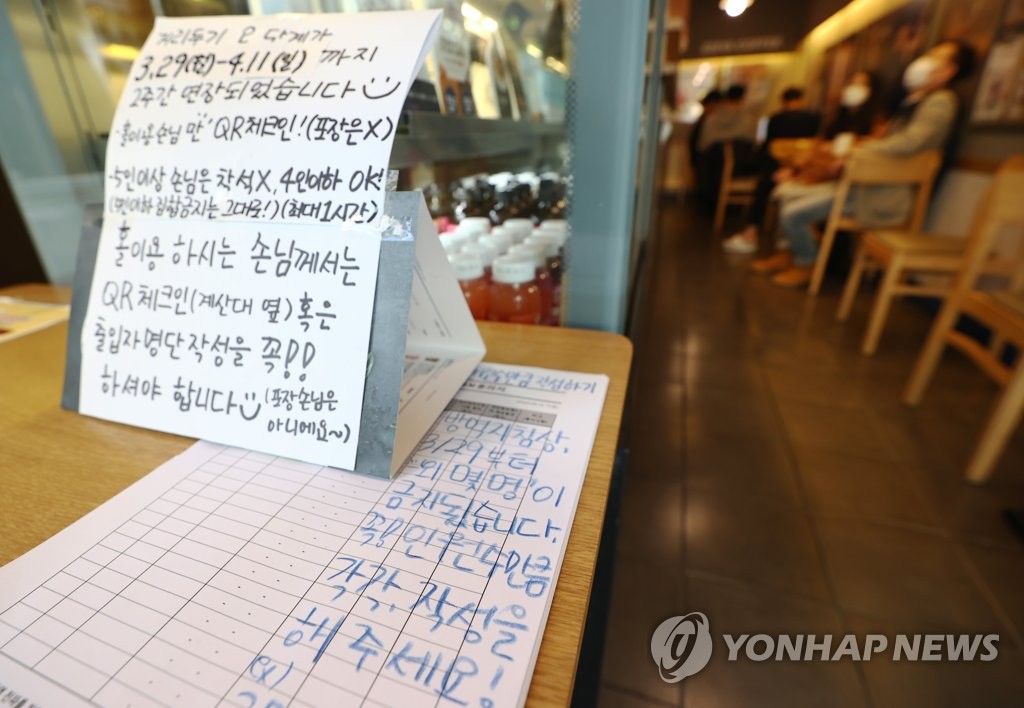 거리두기 2 단계가
3.29(월)-4.11(일) 까지
2주간 연장되었습니다
"홀이용손님 만" QR체크인!(포장은X)
-5인이상 손님은 착석X, 4인이하 OK!
집합금지는 그대로!)(최대1시간)
홀이용 하시는 손님께서는
QR체크인(계산대 옆)혹은
출입자명단작성을 꼭!!
하셔야 합니다 (포장손님은
아니에요~)
작성하기
방역지침상,
3/29부터
"외 몇명"이
금지됩니다.
꼭! 인원수만큼
각각, 작성을
해주세요!
YONHAP NEWS